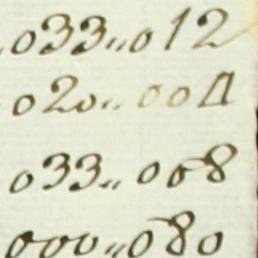 033,,012
020,,004
033,,008
000,,080